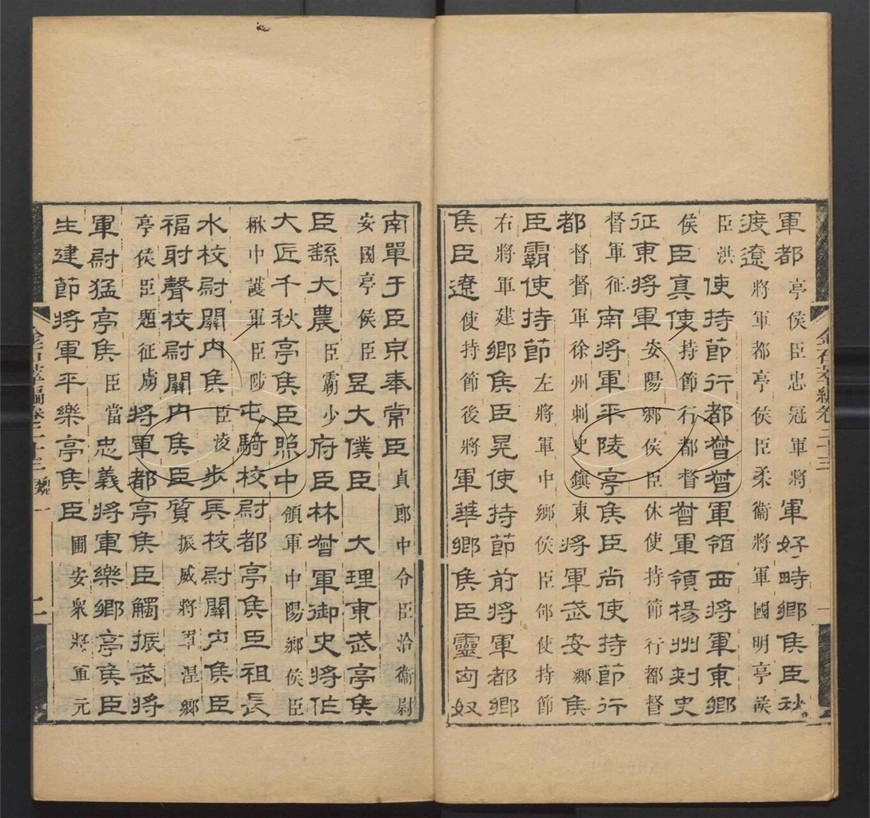 軍都亭侯臣忠冠軍將軍好畤鄉侯臣秋
渡遼將軍都亭侯臣柔衞將軍國明亭侯
臣洪使持節行都督督軍領西將軍東鄉
侯臣真使持節行都督督軍領揚州刺史
征東將軍安陽鄉侯臣休使持節行都督
督軍征南將軍平陵亭侯臣尚使持節行
都督督軍徐州刺史鎮東將軍武安鄉侯
臣霸使持節左將軍中鄉侯臣郃使持節
右將軍建鄉侯臣晃使持節前將軍都鄉
侯臣遼使持節後將軍華鄉侯臣靈匈奴
金石萃編卷二十三
一
南單于臣泉奉常臣貞郎中令臣洽衞尉
安國亭侯臣昱大僕臣大理東武亭侯
臣繇大農臣霸少府臣林督軍御史將作
大匠千秋亭侯臣照中領軍中陽鄉侯臣
楙中護軍臣陟屯騎校尉都亭侯臣祖長
水校尉關內侯臣淩步兵校尉關內侯臣
福射聲校尉關內侯臣質振威將軍涅鄉
亭侯臣題征虜將軍都亭侯臣觸振武將
軍尉猛亭侯臣當忠義將軍樂鄉亭侯臣
生建節將軍平樂亭侯臣圃安衆將軍元
金石萃編卷二十三 魏一
二